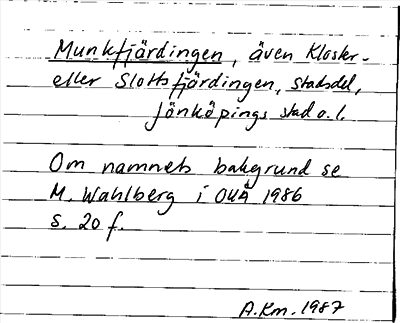 Munkfjärdingen, även Kloster-
eller Slottsfjärdingen, stadsdel,
Jönköpings stad o. l.
Om namnets bakgrund se
M. Wahlberg i OUÅ 1986
s. 20 f.
A.Km. 1987